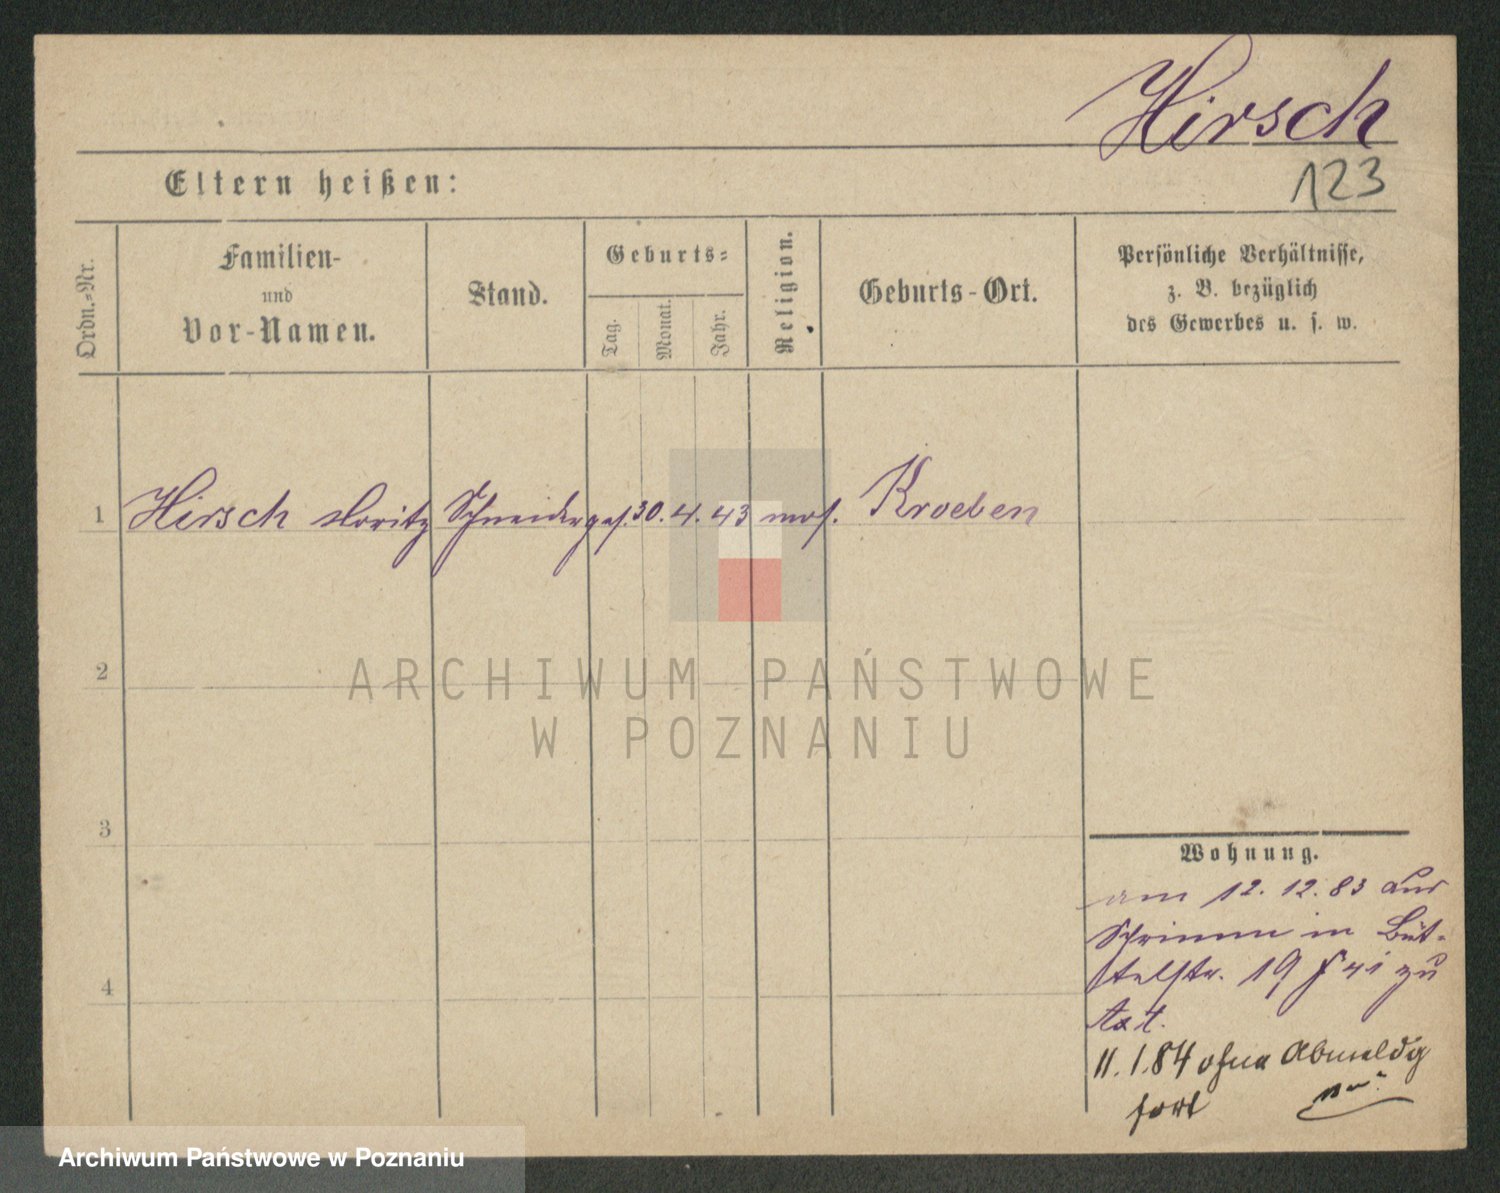 Hirsch
123
Eltern heißen:
Ordn.=Nr.
Familien-
und
Vor-Namen.
Stand.
Geburts=
Tag.
Monat.
Jahr.
Religion.
Geburts-Ort.
Persönliche Verhältnisse,
z. B. bezüglich
des Gewerbes u. s. w.
1 Hirsch Moritz Schneiderges. 30. 4. 43 mos. Kroeben
2
3
4
ARCHIWUM PAŃSTWOWE
W POZNANIU
Wohnung.
am 12. 12. 83 aus
Schrimm in Büt-
telstr. 19 zu
11. 1. 84 ohne Abmeldg
fort
Archiwum Państwowe w Poznaniu